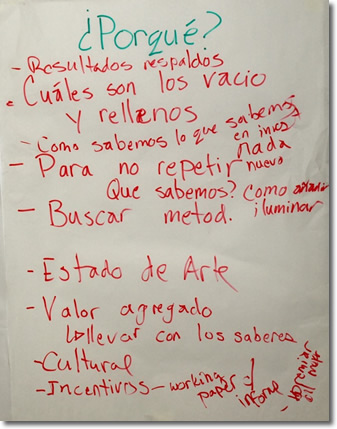 ¿Porqué?
- Resultados respaldos
- Cuáles son los vacio
y rellenos
- Como sabemos lo que sabemos
en
- Para no repetir nada
nuevo
Que sabemos? Como
- Buscar metod. iluminar
- Estado de Arte
- Valor agregado
llevar con los saberes
- Cultural
- Incentivos - working
paper